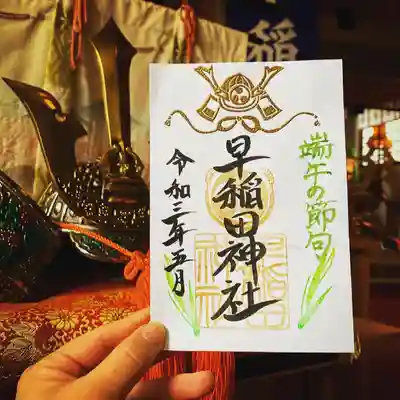 稲
端午の節句
早稲田神社
令和三年五月